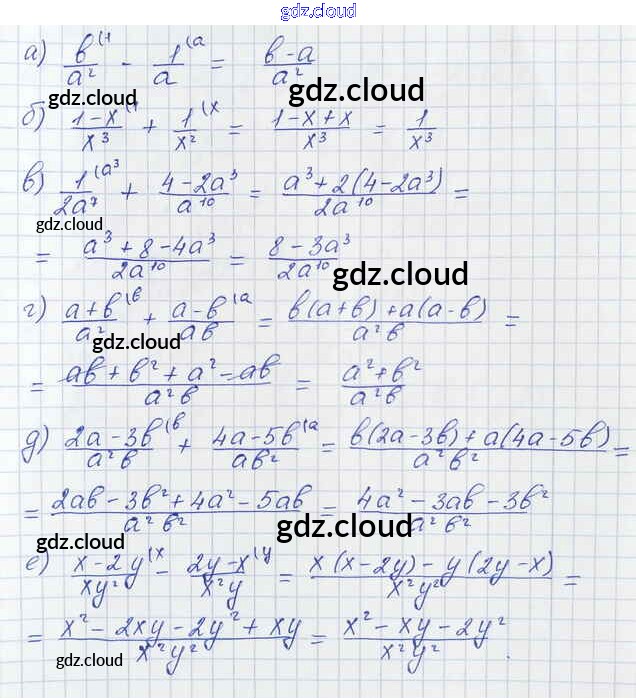 gdz.cloud
а) в(1/a² - 1(a/a = в-a/a²
gdz.cloud gdz.cloud
б) 1-x(1/x³ + 1(x/x² = 1-x+x/x³ = 1/x³
в) 1(a³/2a⁷ + 4-2a³/a¹⁰ = a³+2(4-2a³)/2a¹⁰ =
gdz.cloud
= a³+8-4a³/2a¹⁰ = 8-3a³/2a¹⁰
gdz.cloud
г) a+в(в/a² + a-в(a/aв = в(a+в)+a(a-в)/a²в =
gdz.cloud
= aв+в²+a²-aв/a²в = a²+в²/a²в
д) 2a-3в(в/a²в + 4a-5в(a/aв² = в(2a-3в)+a(4a-5в)/a²в² =
gdz.cloud
= 2aв-3в²+4a²-5aв/a²в² = 4a²-3aв-3в²/a²в²
gdz.cloud
е) x-2y(x/xy² - 2y-x(y/x²y = x(x-2y)-y(2y-x)/x²y² =
gdz.cloud
= x²-2xy-2y²+xy/x²y² = x²-xy-2y²/x²y².
gdz.cloud